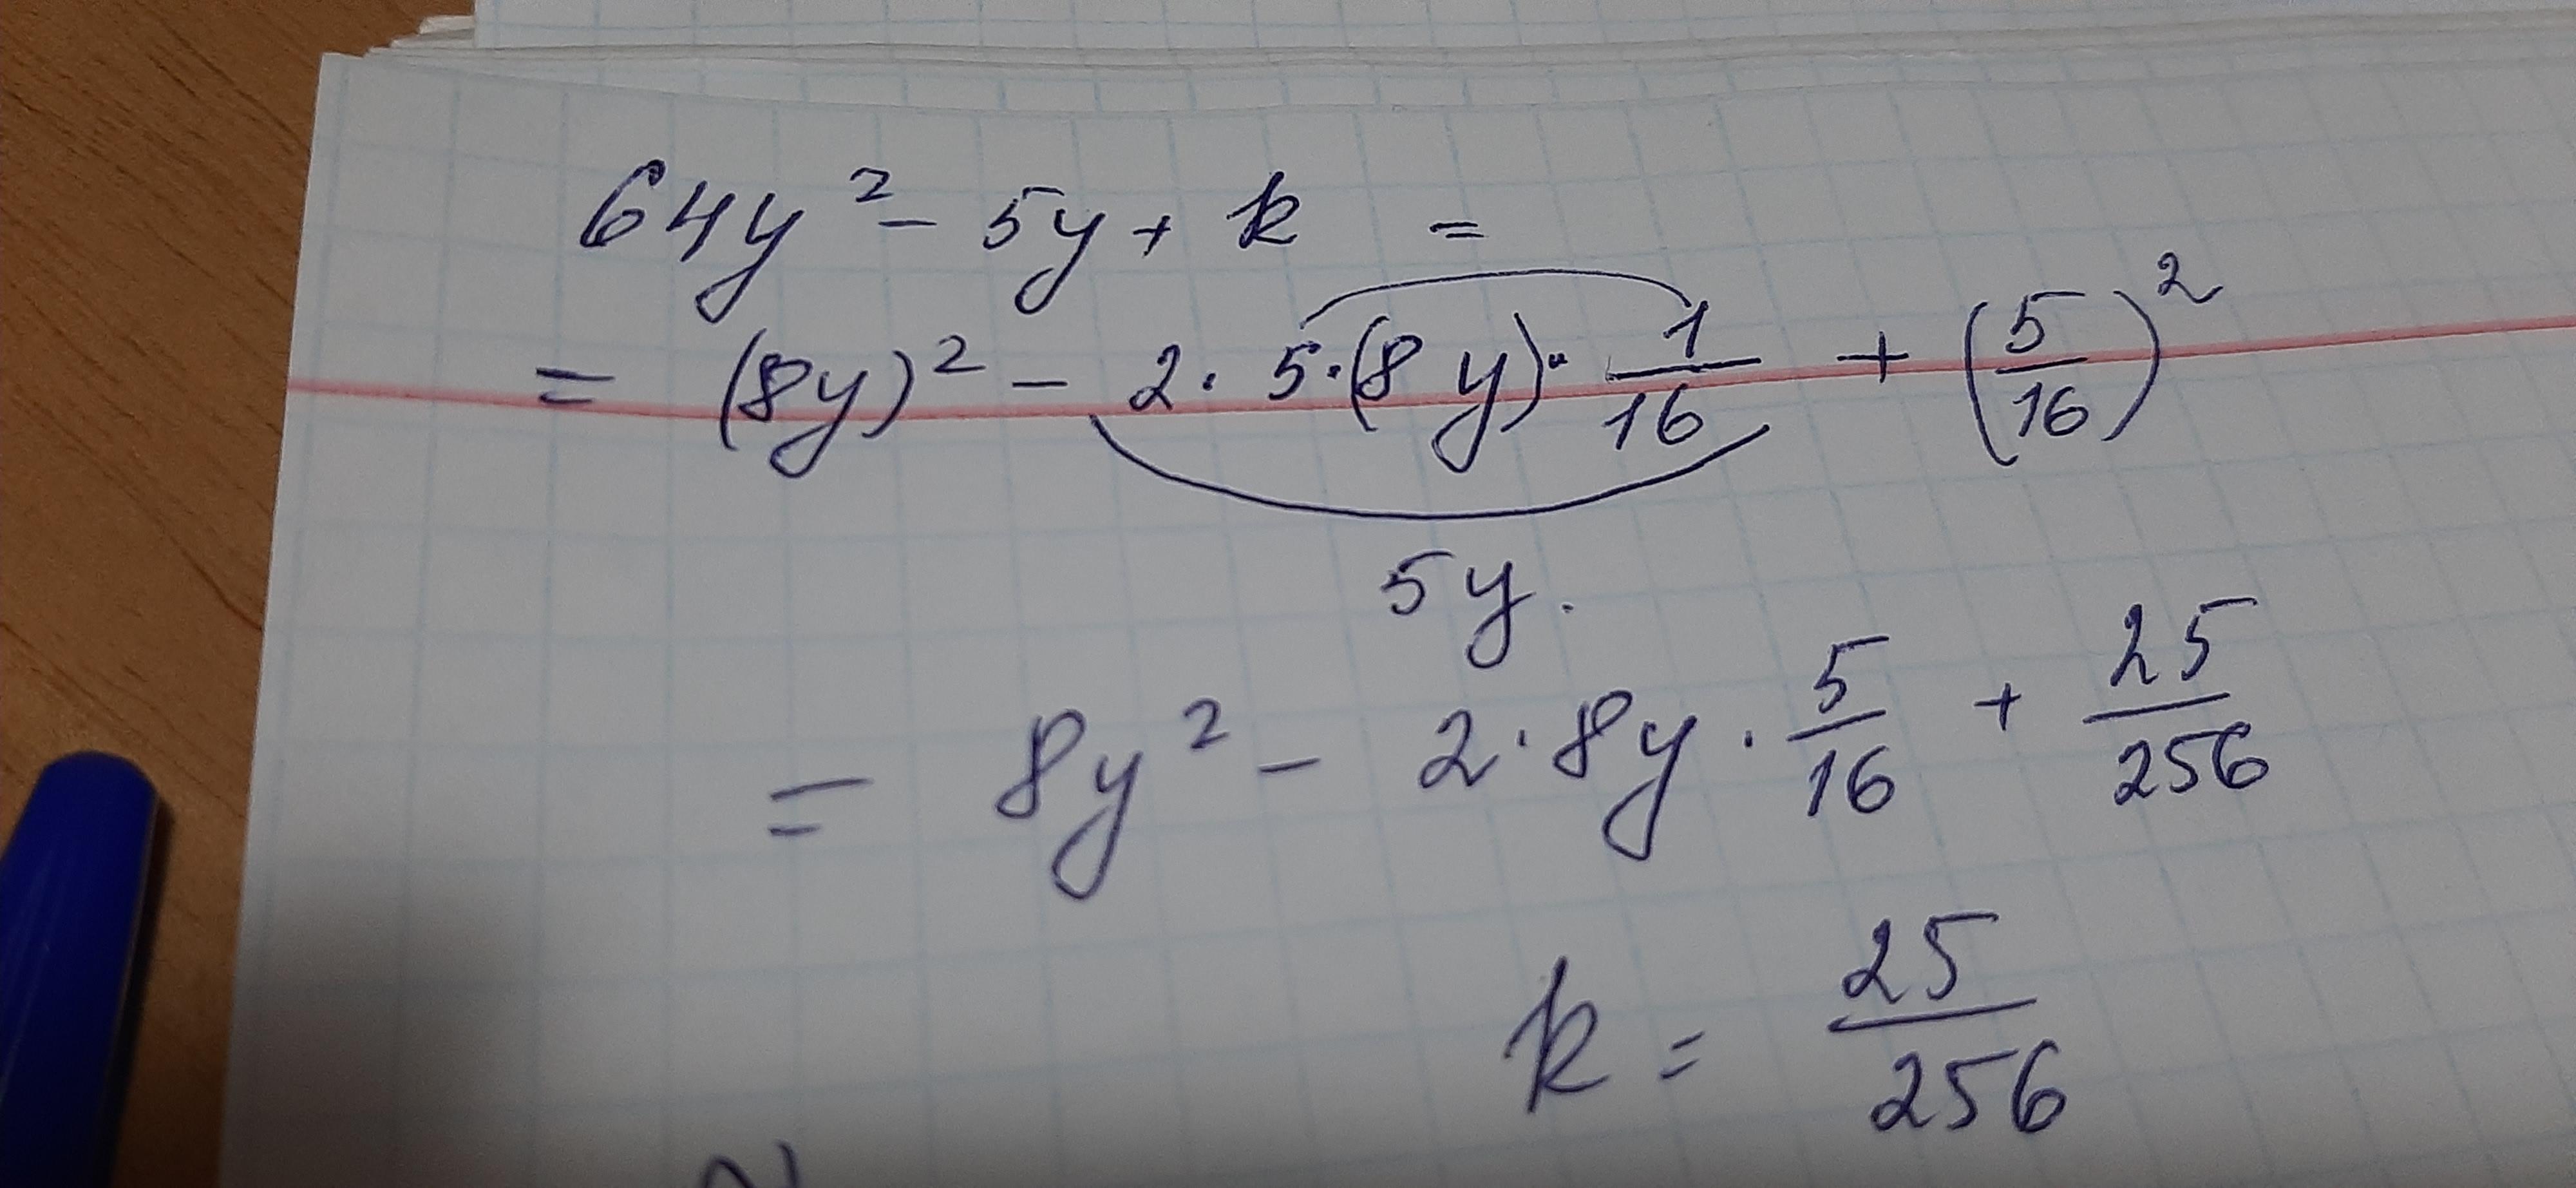 64y² - 5y + k =
= (8y)² - 2 · 5 · (8y) · 1/16 + (5/16)²
5y.
= 8y² - 2 · 8y · 5/16 + 25/256
k = 25/256